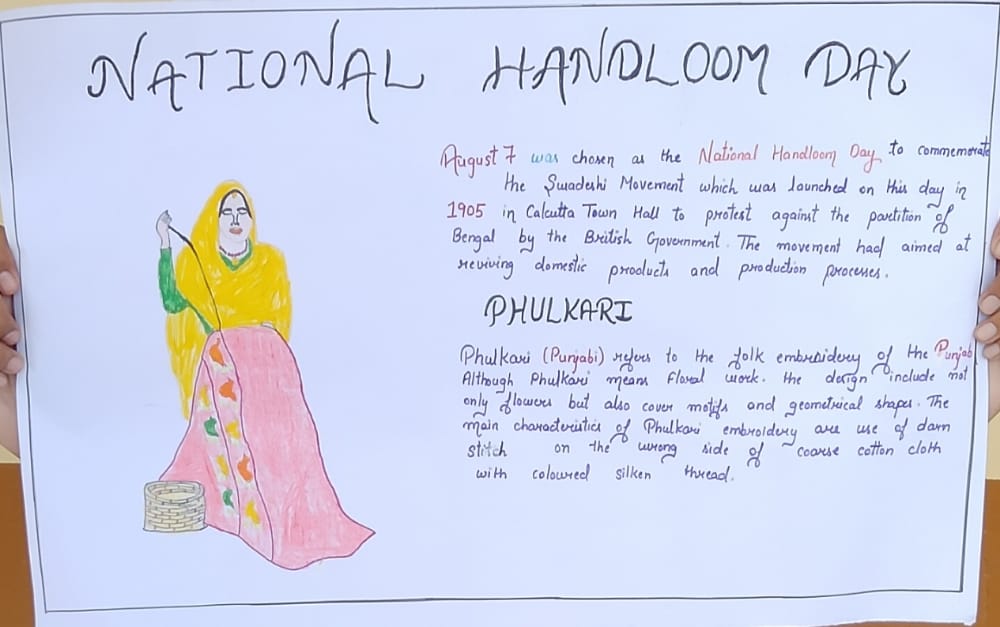 NATIONAL HANDLOOM DAY
August 7 was chosen as the National Handloom Day to commemorate
the Swadeshi Movement which was launched on this day in
1905 in Calcutta Town Hall to protest against the partition of
Bengal by the British Government. The movement had aimed at
reviving domestic products and production processes.
PHULKARI
Phulkari (Punjabi) refers to the folk embroidery of the Punjab
Although Phulkari means floral work. the design include not
only flowers but also cover motifs and geometrical shapes. The
main characteristics of Phulkari embroidery are use of darn
stitch on the wrong side of coarse cotton cloth
with coloured silken thread.